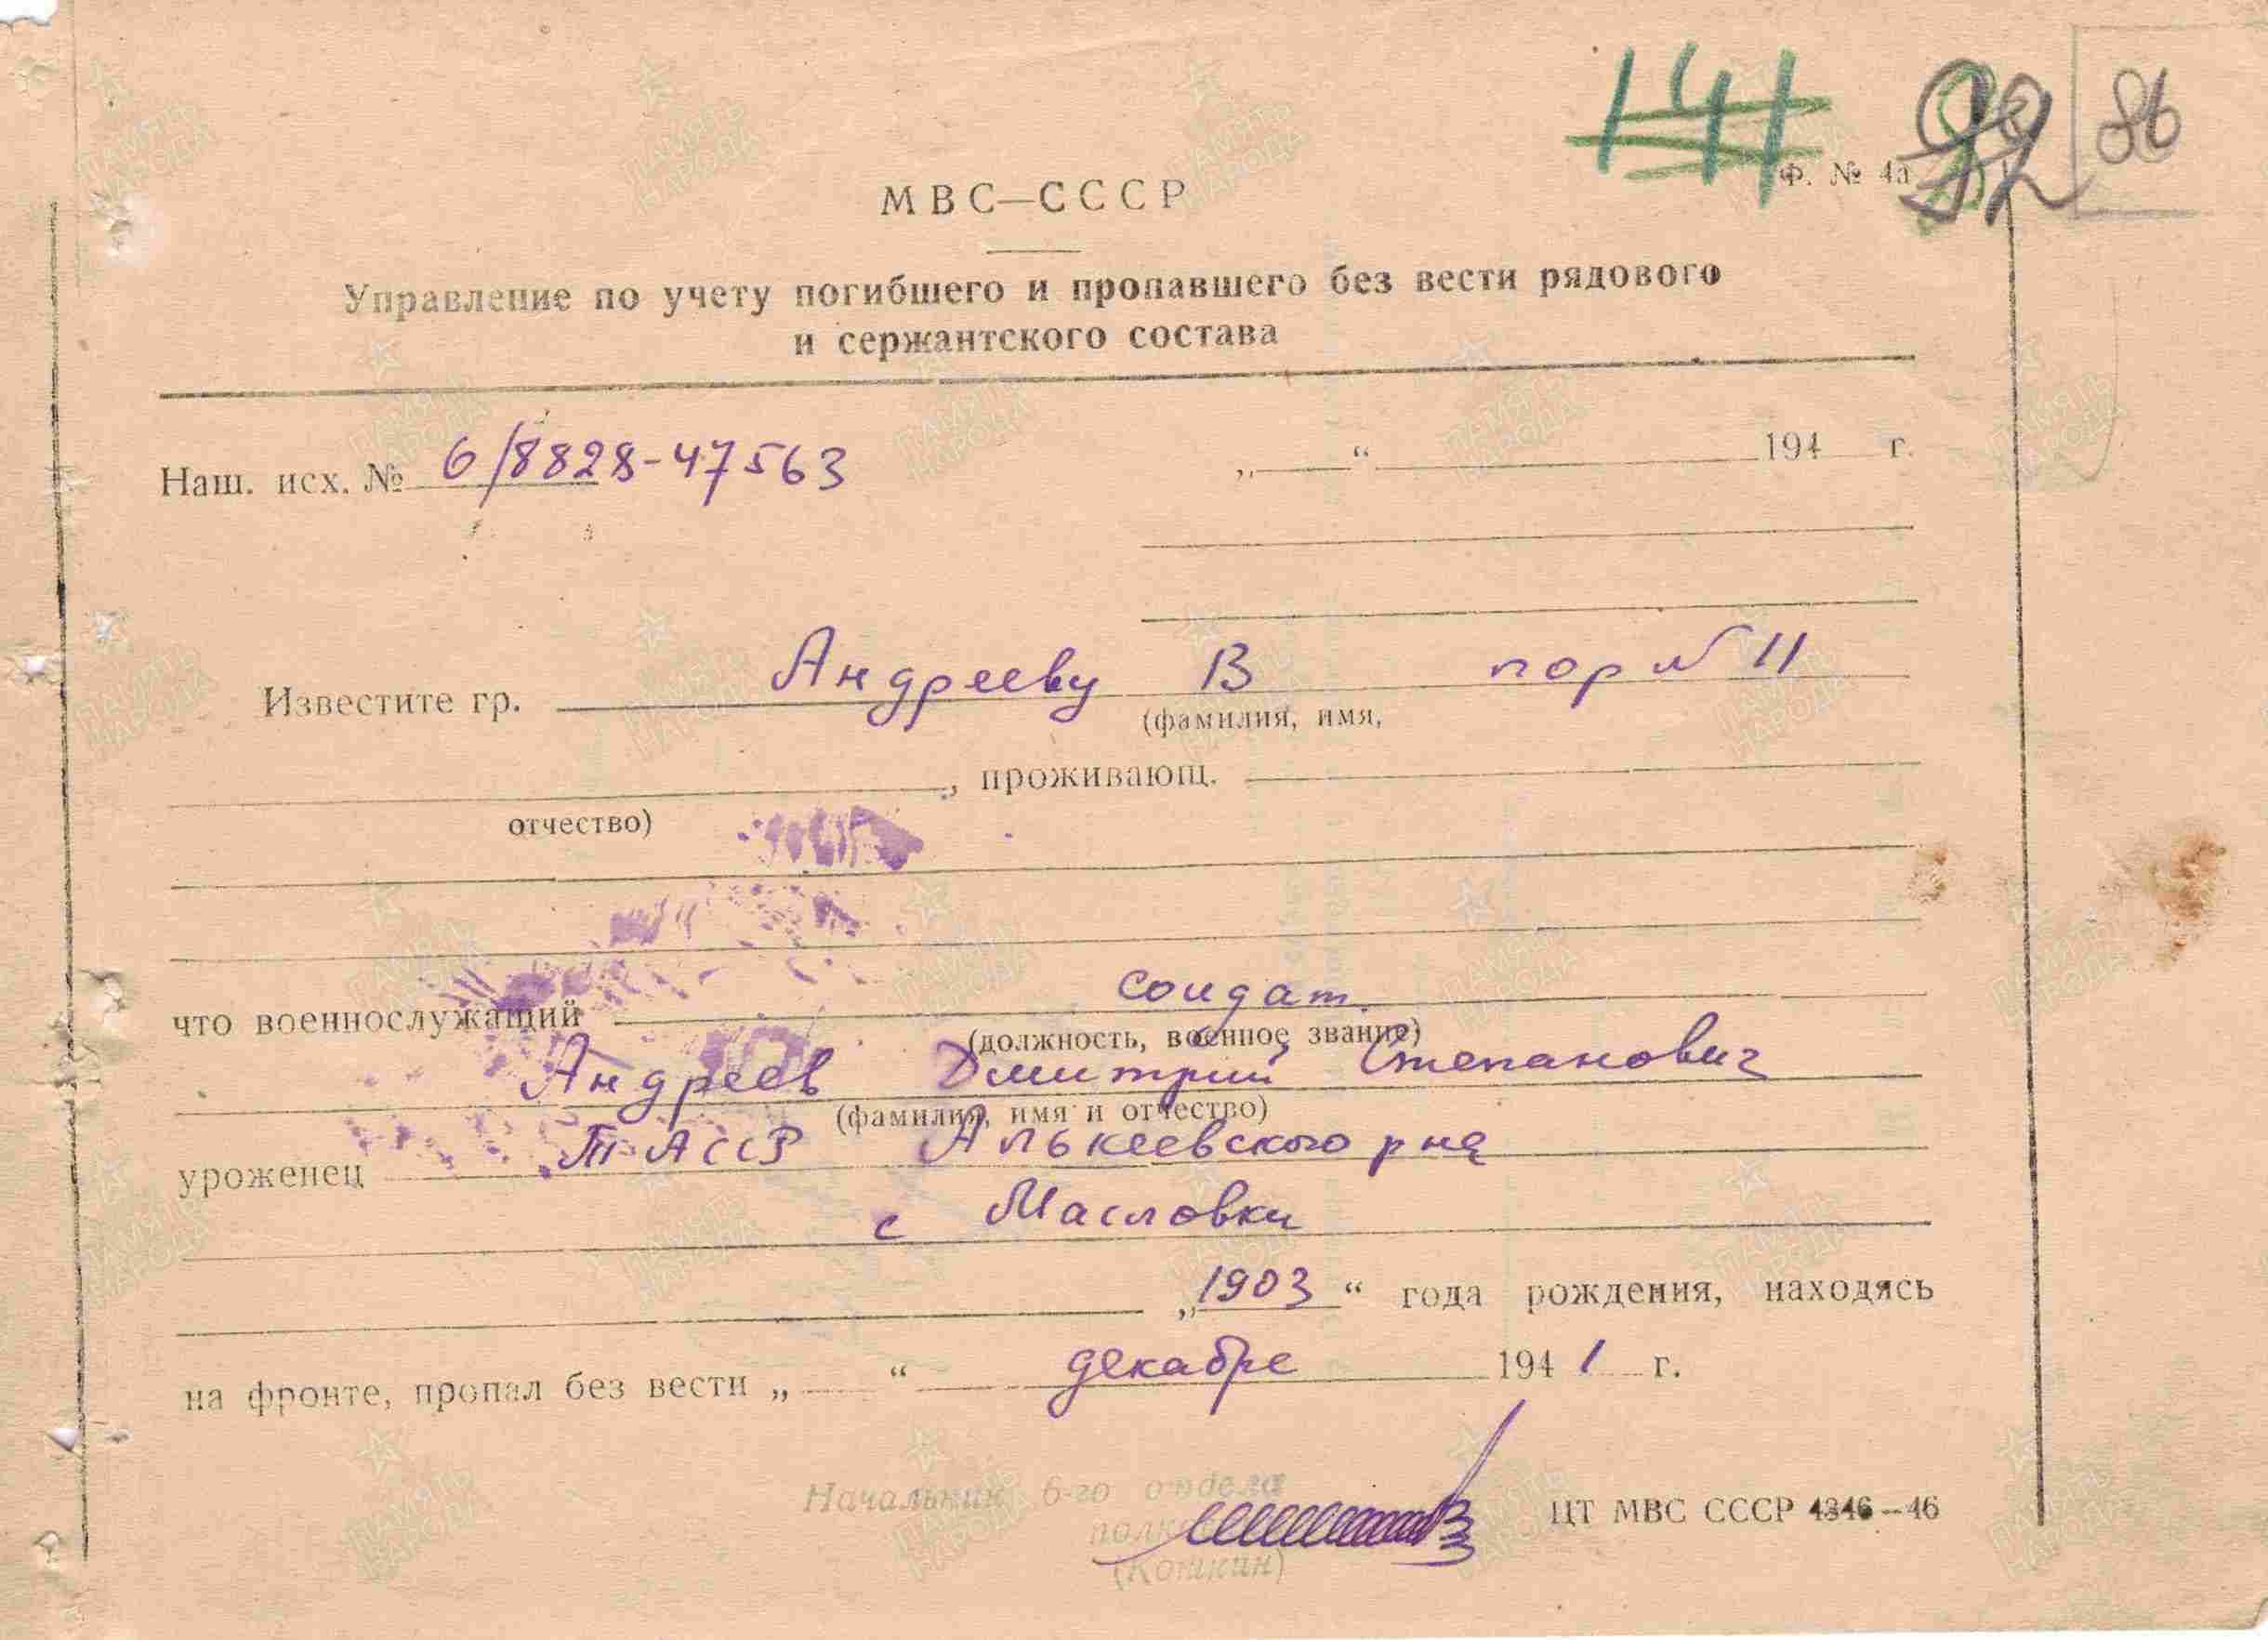 141 86
Ф. № 4а
МВС—СССР
Управление по учету погибшего и пропавшего без вести рядового
и сержантского состава
Наш. исх. № 6/8828-47563 „ “ 194 г.
Известите гр. Андрееву В пор № 11
(фамилия, имя,
, проживающ.
отчество)
что военнослужащий солдат
(должность, военное звание)
Андреев Дмитрий Степанович
(фамилия, имя и отчество)
уроженец ТАССР Алькеевского рна
с Масловки
„1903“ года рождения, находясь
на фронте, пропал без вести „ “ декабре 1941 г.
Начальник 6-го отдела
(Кошкин)
ЦТ МВС СССР 4346—46
ПАМЯТЬ НАРОДА